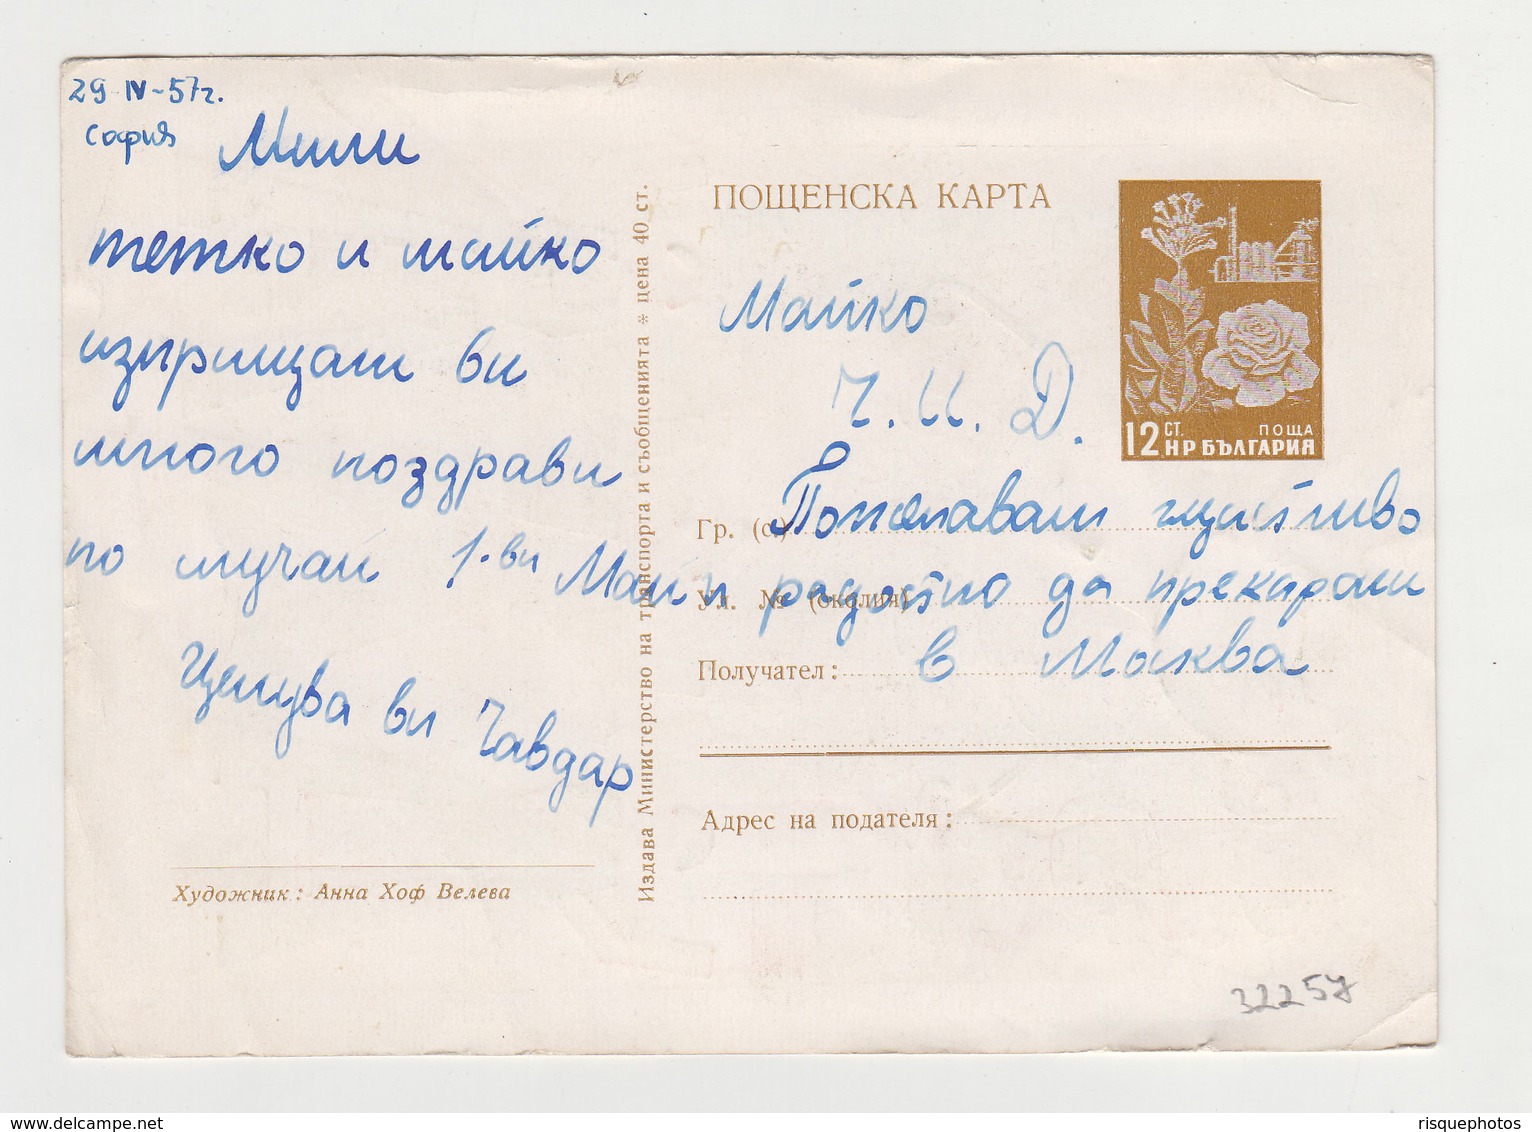 29-IV-57г.
София
Мили
тетко и майко
изпращам ви
много поздрави
по случай 1-ви Май
Целува ви Чавдар
Художник: Анна Хоф Велева
Издава Министерство на транспорта и съобщенията * цена 40 ст.
ПОЩЕНСКА КАРТА
12 СТ. ПОЩА
НР БЪЛГАРИЯ
Майко
Ч. И. Д.
Пожелавам щастливо
Гр. (с.)
и радостно да прекараш
Ул. № (околия)
в Москва
Получател:
Адрес на подателя:
32257
delcampe.net
risquephotos